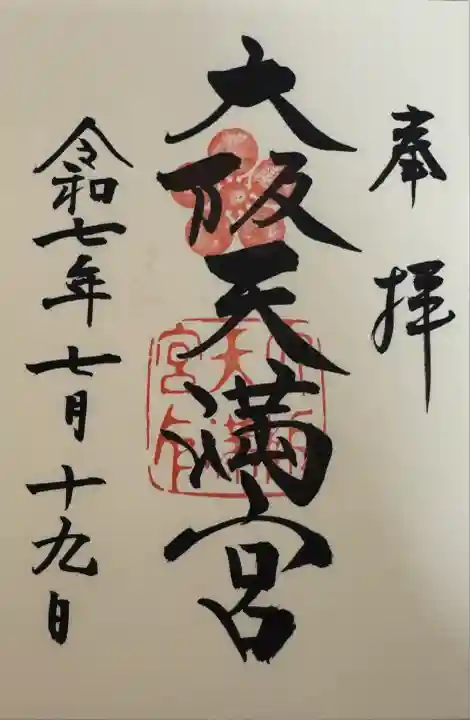 奉拝
大阪天満宮
令和七年七月十九日